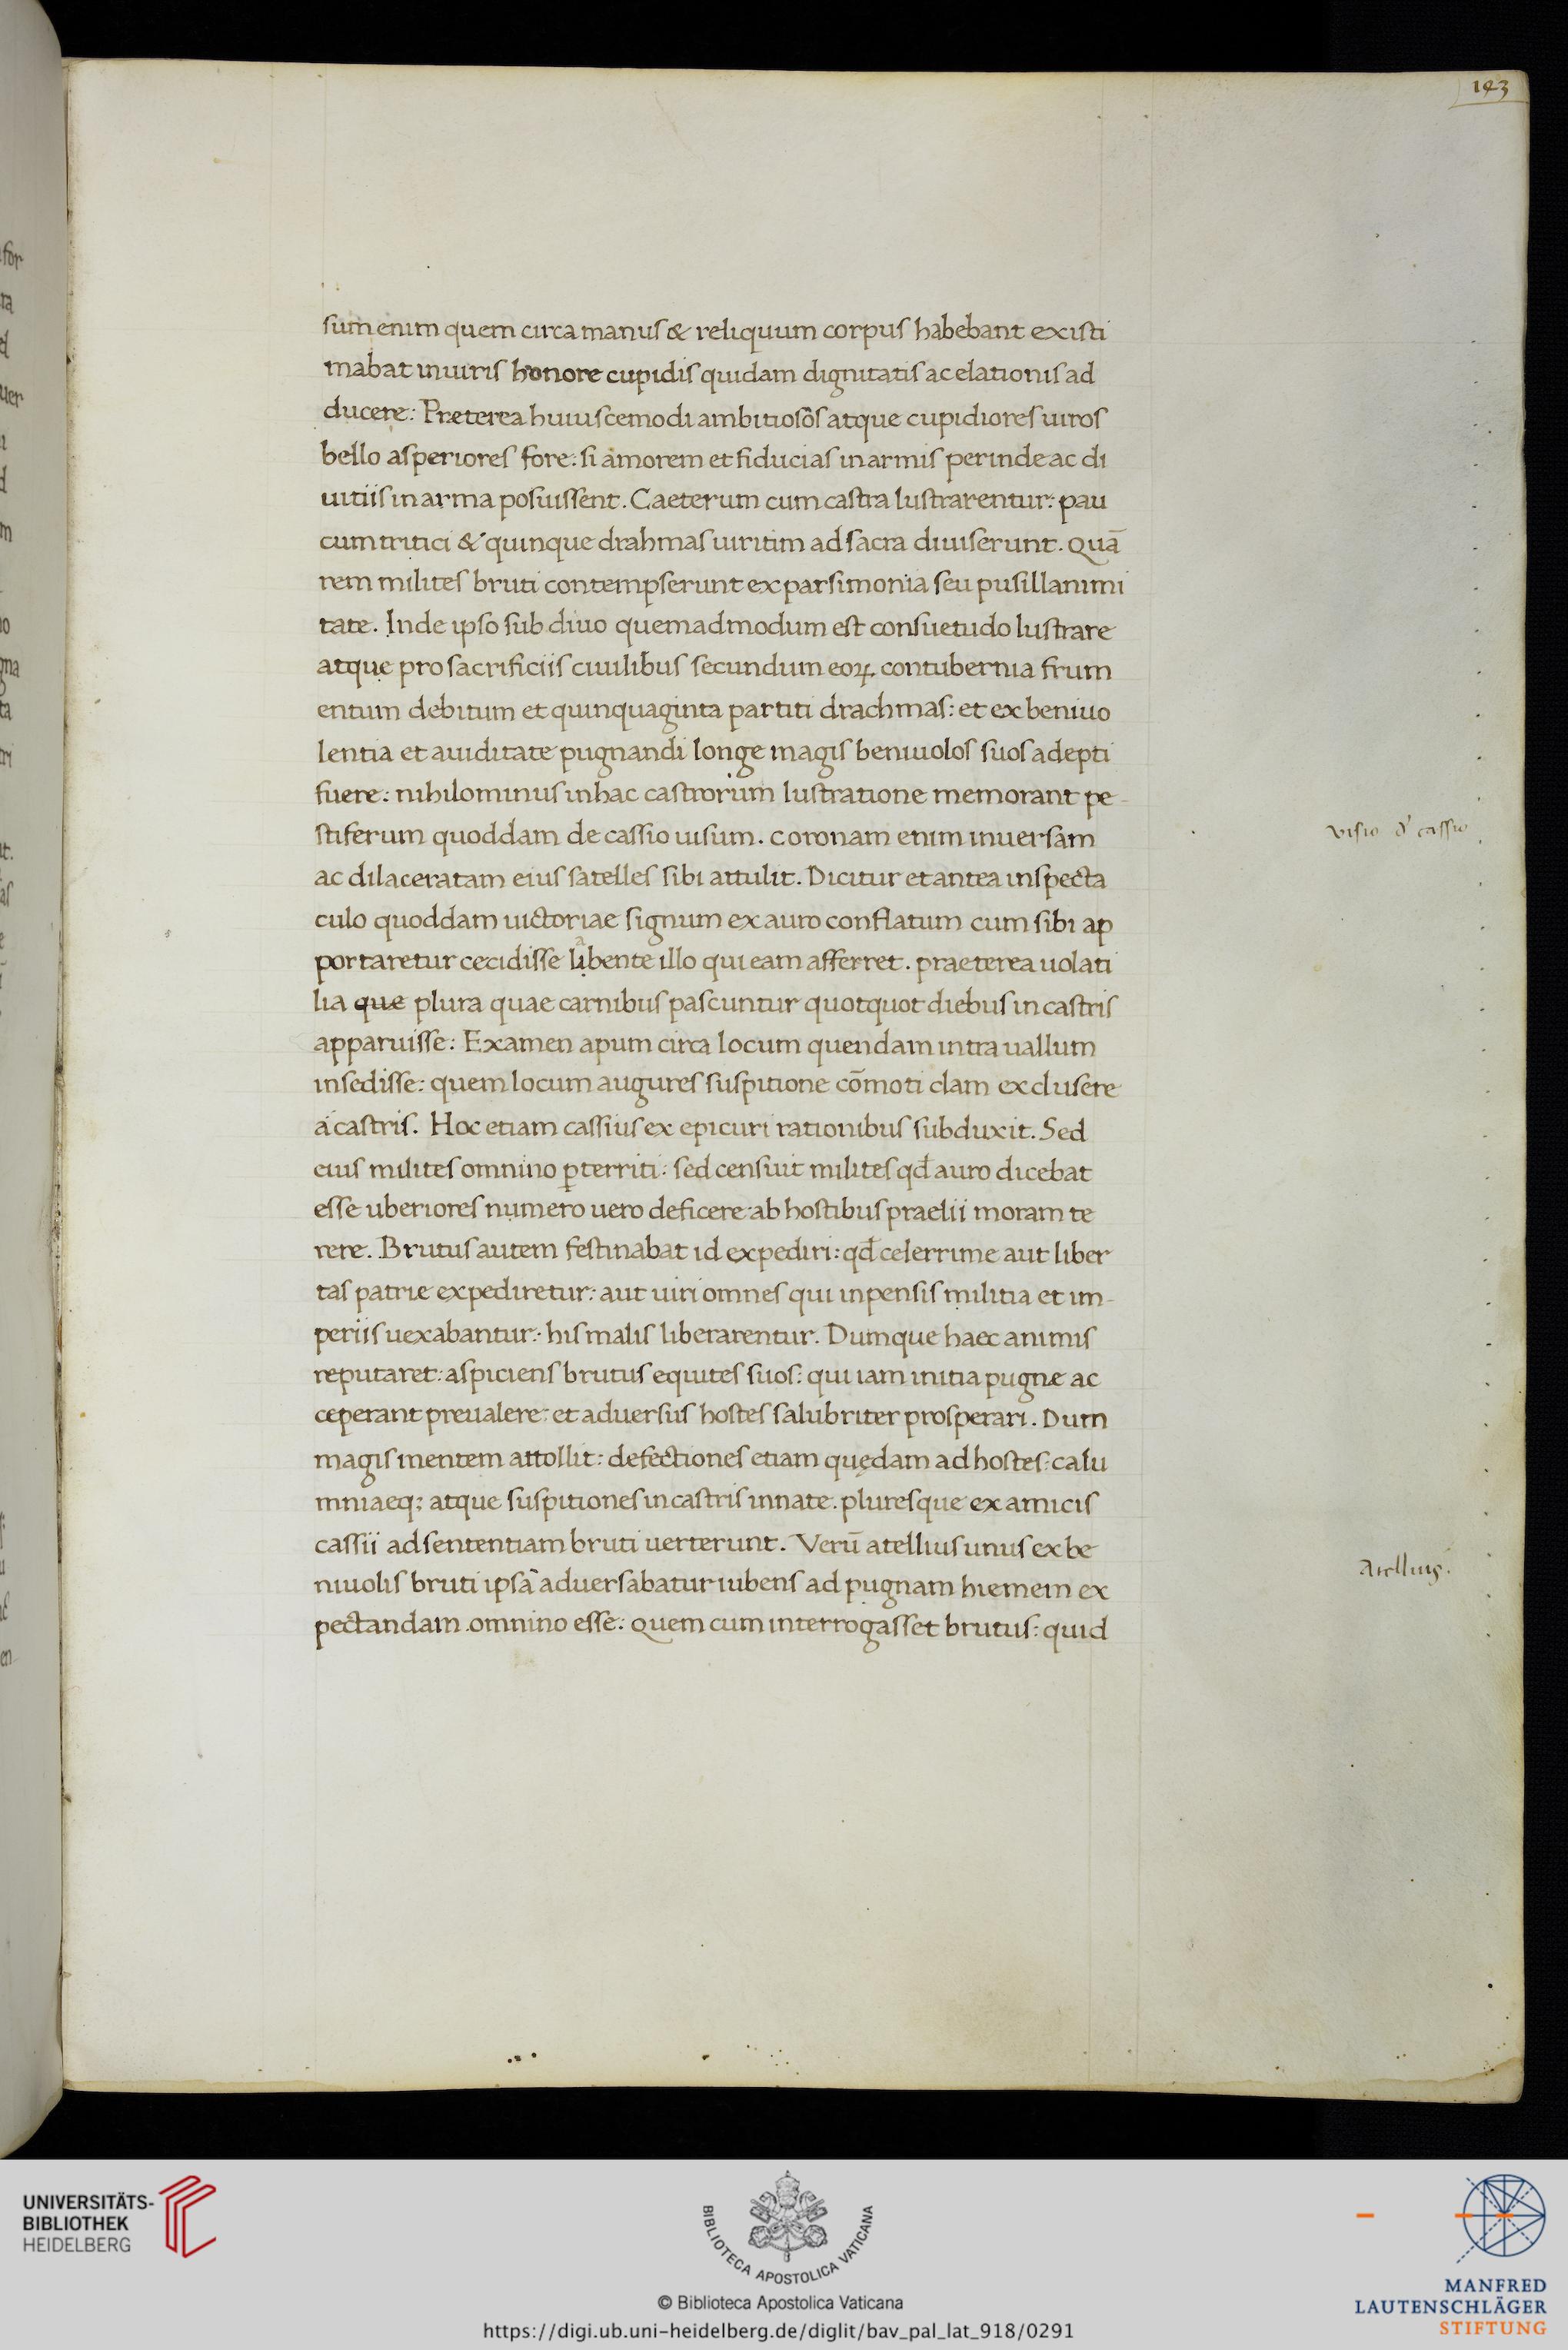 143
sum enim quem circa manus & reliquum corpus habebant existi
mabat in uiris honore cupidis quidam dignitatis ac elationis ad
ducere: Preterea huiuscemodi ambitiosos atque cupidiores uiros
bello asperiores fore: si amorem et fiducias in armis perinde ac di
uitiis in arma posuissent. Caeterum cum castra lustrarentur: pau
cum tritici & quinque drahmas uiritim ad sacra diuiserunt. Quā
rem milites bruti contempserunt ex parsimonia seu pusillanimi
tate. Inde ipso sub diuo quemadmodum est consuetudo lustrare
atque pro sacrificiis ciuilibus secundum eoꝝ contubernia frum
entum debitum et quinquaginta partiti drachmas: et ex beniuo
lentia et auiditate pugnandi longe magis beniuolos suos adepti
fuere: nihilominus in hac castrorum lustratione memorant pe-
stiferum quoddam de cassio uisum. coronam enim inuersam
visio d' cassio
ac dilaceratam eius satelles sibi attulit. Dicitur et antea in specta
culo quoddam uictoriae signum ex auro conflatum cum sibi ap
portaretur cecidisse labente illo qui eam afferret. praeterea uolati
lia que plura quae carnibus pascuntur quotquot diebus in castris
apparuisse: Examen apum circa locum quendam intra uallum
insedisse: quem locum augures suspitione cōmoti clam exclusere
a castris. Hoc etiam cassius ex epicuri rationibus subduxit. Sed
eius milites omnino ꝑterriti: sed censuit milites qđ auro dicebat
esse uberiores numero uero deficere ab hostibus praelii moram te
rere. Brutus autem festinabat id expediri: qđ celerrime aut liber
tas patrie expediretur: aut uiri omnes qui inpensis militia et im-
periis uexabantur: his malis liberarentur. Dumque haec animis
reputaret: aspiciens brutus equites suos: qui iam initia pugne ac
ceperant preualere: et aduersus hostes salubriter prosperari. Dum
magis mentem attollit: defectiones etiam quędam ad hostes: calu
mniaeq; atque suspitiones in castris innate. pluresque ex amicis
cassii ad sententiam bruti uerterunt. Verū atellius unus ex be
niuolis bruti ipsā aduersabatur iubens ad pugnam hiemem ex
Atellius.
pectandam omnino esse: Quem cum interrogasset brutus: quid
UNIVERSITÄTS-
BIBLIOTHEK
HEIDELBERG
BIBLIOTECA APOSTOLICA VATICANA
© Biblioteca Apostolica Vaticana
https://digi.ub.uni-heidelberg.de/diglit/bav_pal_lat_918/0291
MANFRED
LAUTENSCHLÄGER
STIFTUNG